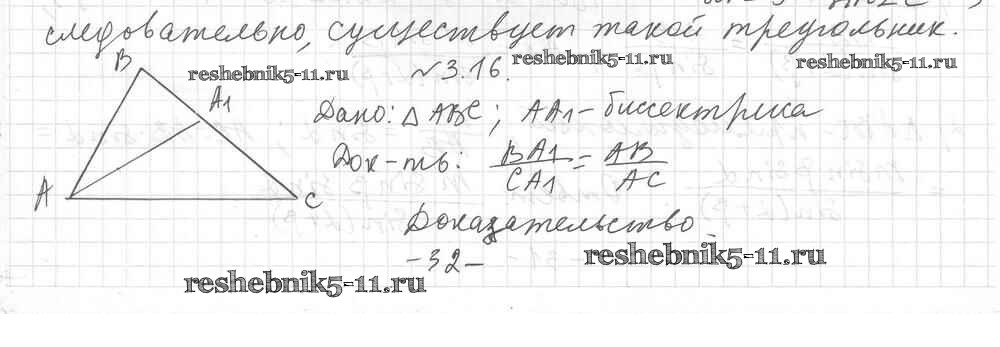 следовательно, существует такой треугольник.
reshebnik5-11.ru
№3.16.
reshebnik5-11.ru
reshebnik5-11.ru
B
A1
A
C
Дано: △ABC; AA1 - биссектриса
Док-ть: BA1/CA1 = AB/AC
Доказательство
-32-
reshebnik5-11.ru
reshebnik5-11.ru